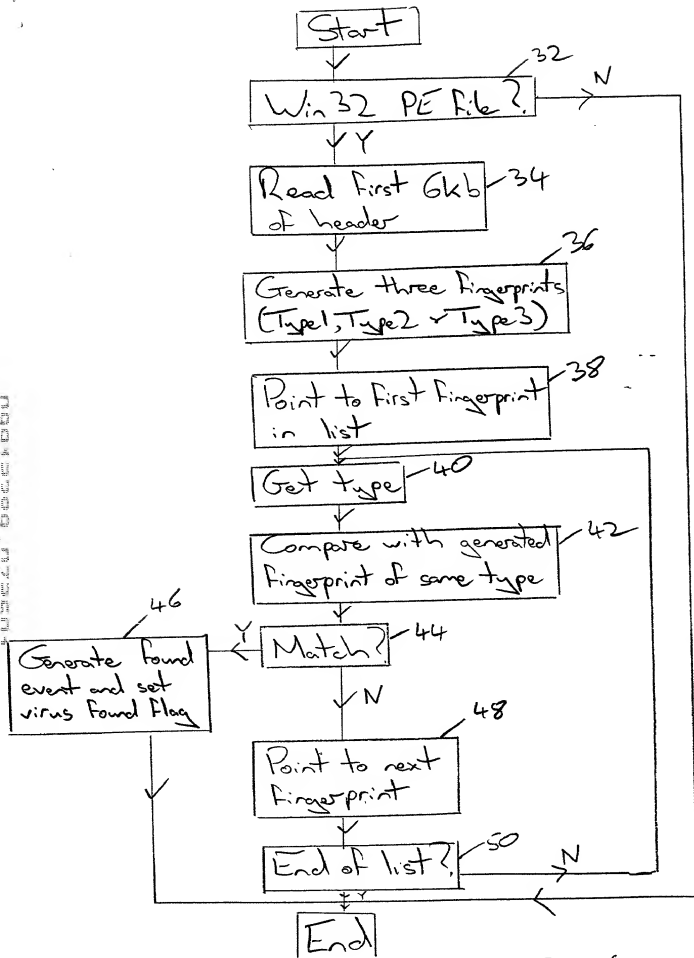 Start
32
Win32 PE File?
N
Y
Read First 6kb
of header
34
36
Generate three fingerprints
(Type1, Type2 & Type3)
38
Point to First Fingerprint
in list
Get type
40
Compare with generated
Fingerprint of same type
42
46
Generate found
event and set
virus found flag
Y
Match?
44
N
48
Point to next
Fingerprint
End of list?
50
N
Y
End